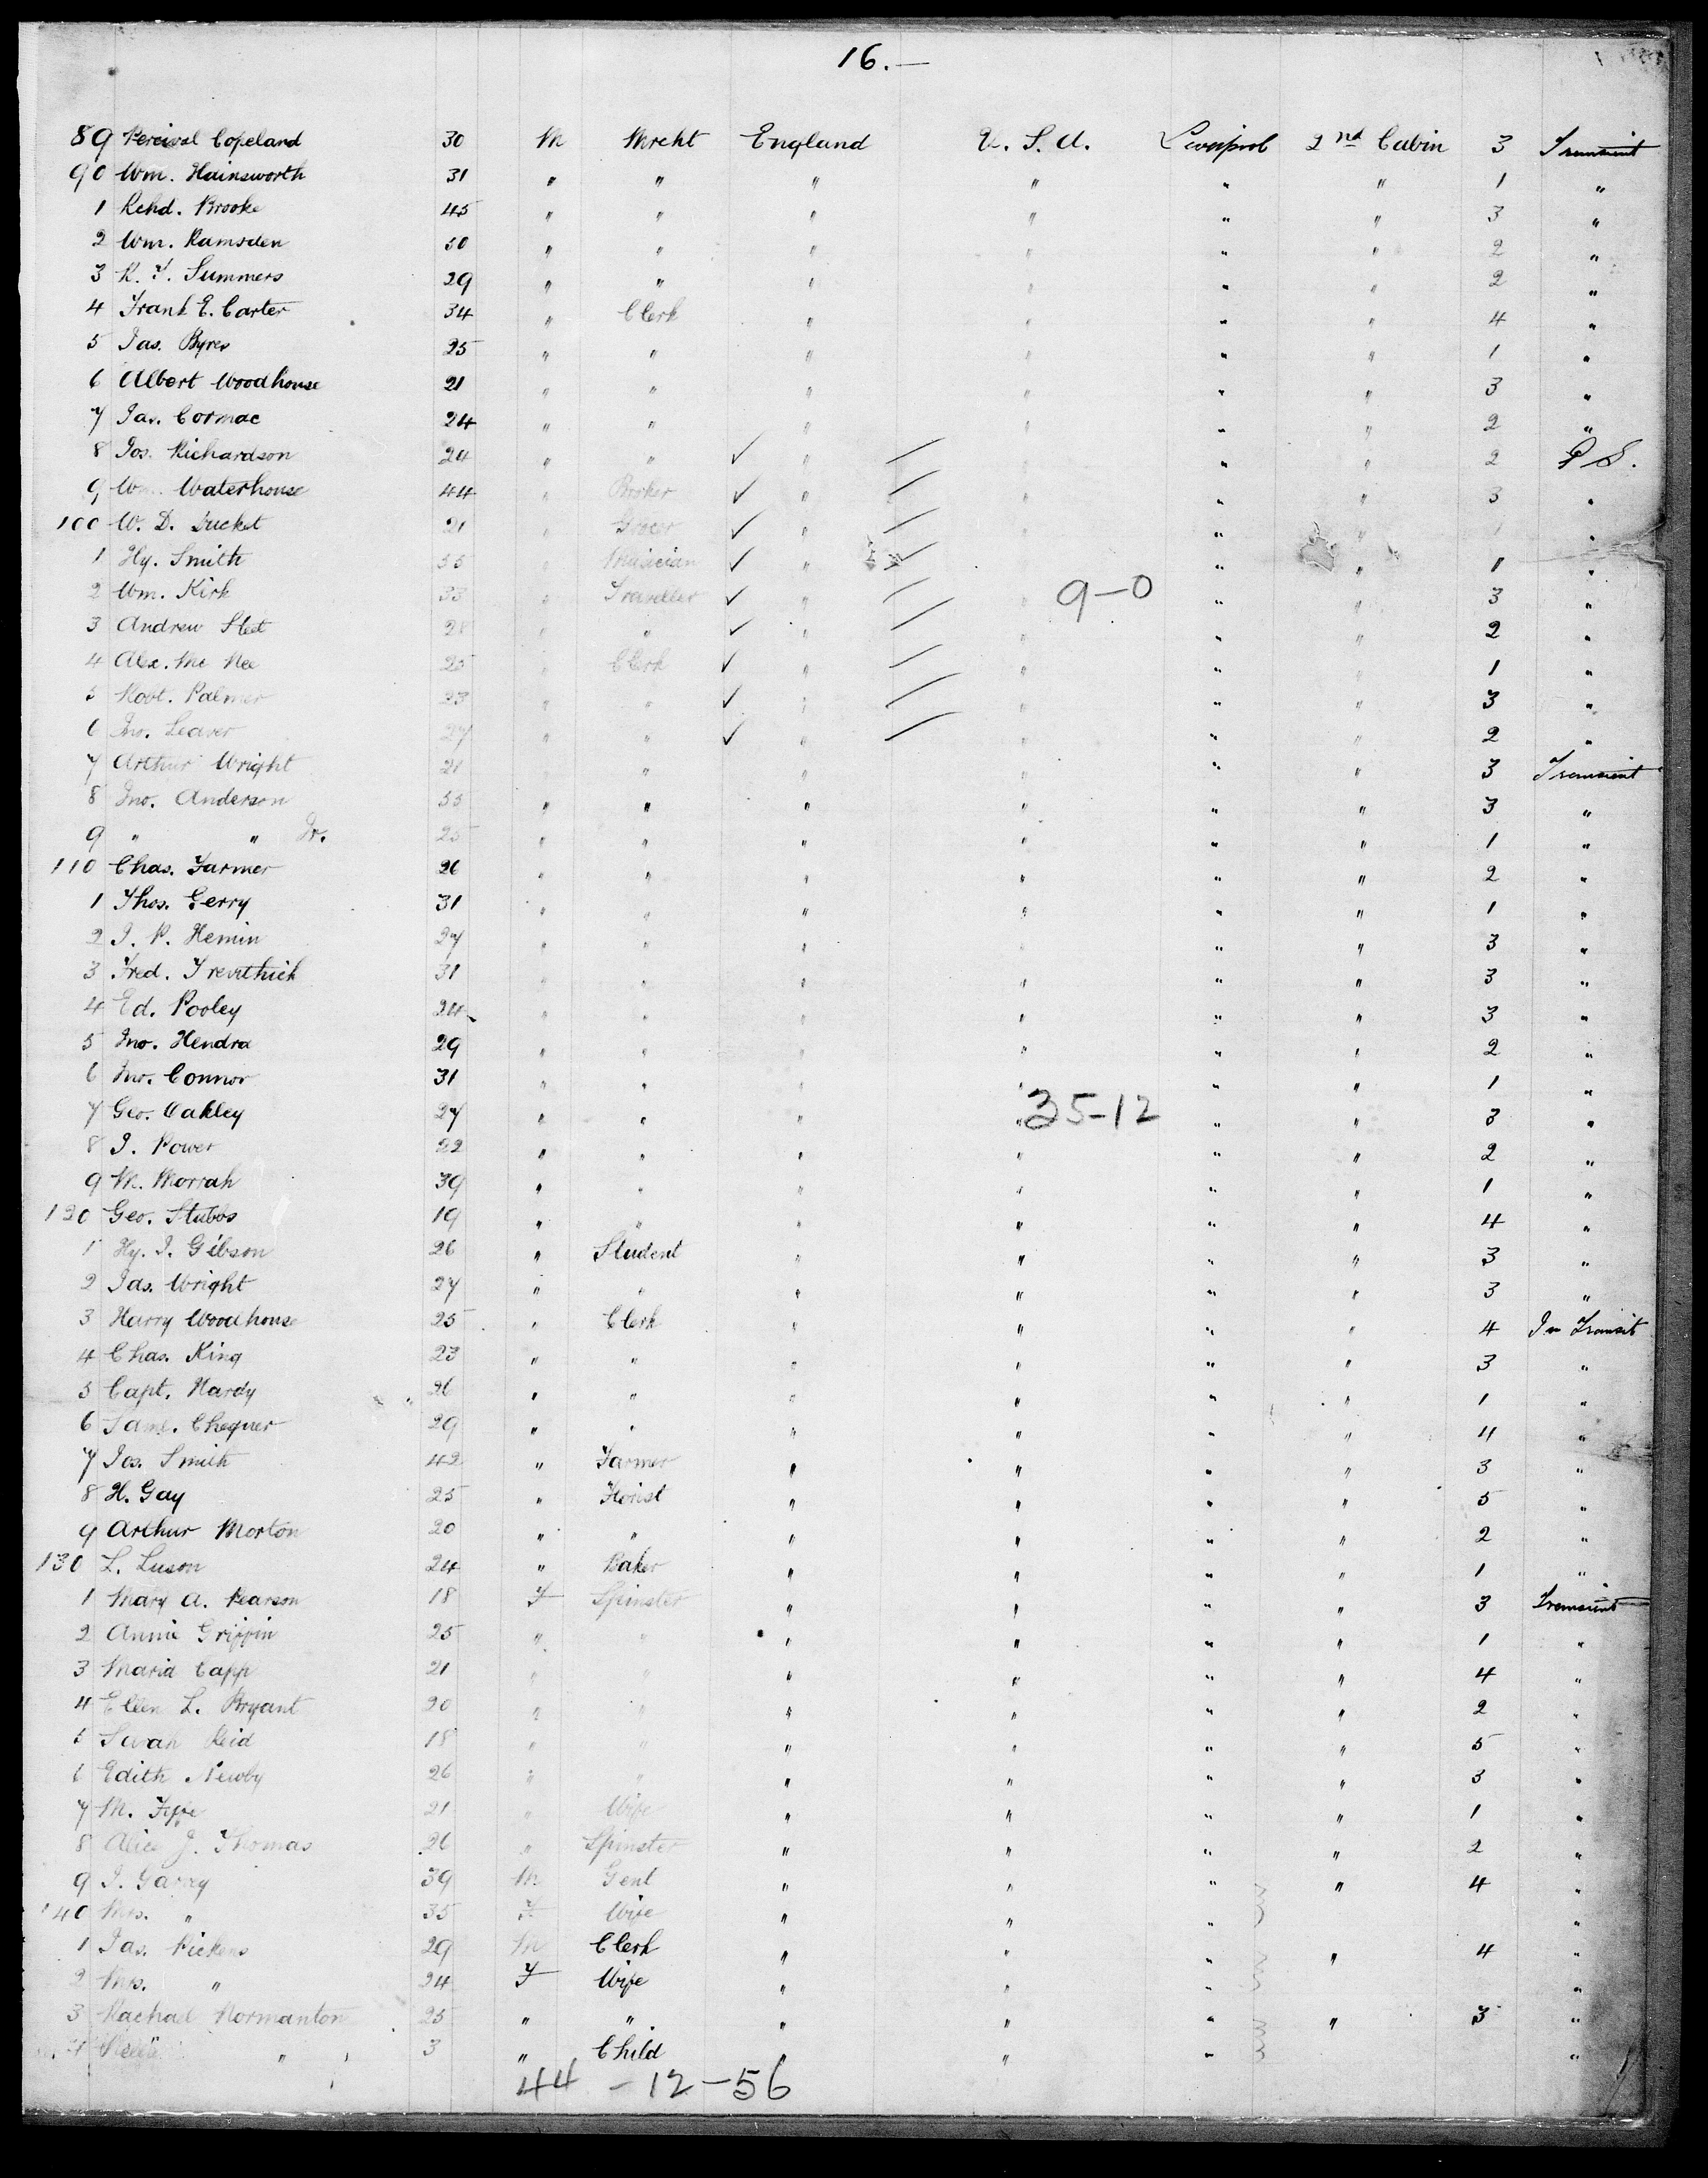 16.—
89 Percival Copeland 30 M Mrcht England U. S. A. Liverpool 2nd Cabin 3 Transient
90 Wm. Hainsworth 31 " " " " " " 1 "
1 Rchd. Brooke 45 " " " " " " 3 "
2 Wm. Ramsden 50 " " " " " " 2 "
3 R. Y. Summers 29 " " " " " " 2 "
4 Frank E. Carter 34 " Clerk " " " " 4 "
5 Jas. Byres 25 " " " " " " 1 "
6 Albert Woodhouse 21 " " " " " " 3 "
7 Jas. Cormac 24 " " " " " " 2 "
8 Jos. Richardson 24 " " ✓ " / " " " 2 P S.
9 Wm. Waterhouse 44 " Broker ✓ " / " " " 3 "
100 W. D. Ducket 21 " Grocer ✓ " / " " " 1 "
1 Hy. Smith 55 " Musician ✓ " / " " 1 "
2 Wm. Kirk 33 " Traveller ✓ " / " 9–0 " " 3 "
3 Andrew Sleet 28 " " ✓ " / " " " 2 "
4 Alex. Mc Nee 25 " Clerk ✓ " / " " " 1 "
5 Robt. Palmer 23 " " ✓ " / " " " 3 "
6 Jno. Leaver 27 " " ✓ " / " " " 2 "
7 Arthur Wright 21 " " " " " " 3 Transient
8 Jno. Anderson 55 " " " " " " 3 "
9 " " Jr. 25 " " " " " " 1 "
110 Chas. Farmer 26 " " " " " " 2 "
1 Thos. Gerry 31 " " " " " " 1 "
2 J. P. Hemin 27 " " " " " " 3 "
3 Fred. Trevithick 31 " " " " " " 3 "
4 Ed. Pooley 24 " " " " " " 3 "
5 Jno. Hendra 29 " " " " " " 2 "
6 Jno. Connor 31 " " " " " " 1 "
7 Geo. Oakley 27 " " " " 35–12 " " 3 "
8 J. Power 22 " " " " " " 2 "
9 M. Morrah 39 " " " " " " 1 "
120 Geo. Stubbs 19 " " " " " " 4 "
1 Hy. J. Gibson 26 " Student " " " " 3 "
2 Jas. Wright 27 " " " " " " 3 "
3 Harry Woodhouse 25 " Clerk " " " " 4 In Transit
4 Chas. King 23 " " " " " " 3 "
5 Capt. Hardy 26 " " " " " " 1 "
6 Saml. Chequer 29 " " " " " " 11 "
7 Jos. Smith 42 " Farmer " " " " 3 "
8 H. Gay 25 " Florist " " " " 5 "
9 Arthur Morton 20 " " " " " " 2 "
130 L. Luson 24 " Baker " " " " 1 "
1 Mary A. Pearson 18 F Spinster " " " " 3 Transient
2 Annie Griffin 25 " " " " " " 1 "
3 Maria Capp 21 " " " " " " 4 "
4 Ellen L. Bryant 20 " " " " " " 2 "
5 Sarah Reid 18 " " " " " " 5 "
6 Edith Newby 26 " " " " " " 3 "
7 M. Fyfe 21 " Wife " " " " 1 "
8 Alice J. Thomas 26 " Spinster " " " " 2 "
9 J. Garry 39 M Gent " " " " 4 "
140 Mrs. " 35 F Wife " " " "
1 Jas. Pickens 29 M Clerk " " " " 4 "
2 Mrs. " 24 F Wife " " " "
3 Rachael Normanton 25 " " " " " " 3 "
4 " 3 " Child " " " "
44 – 12 – 56